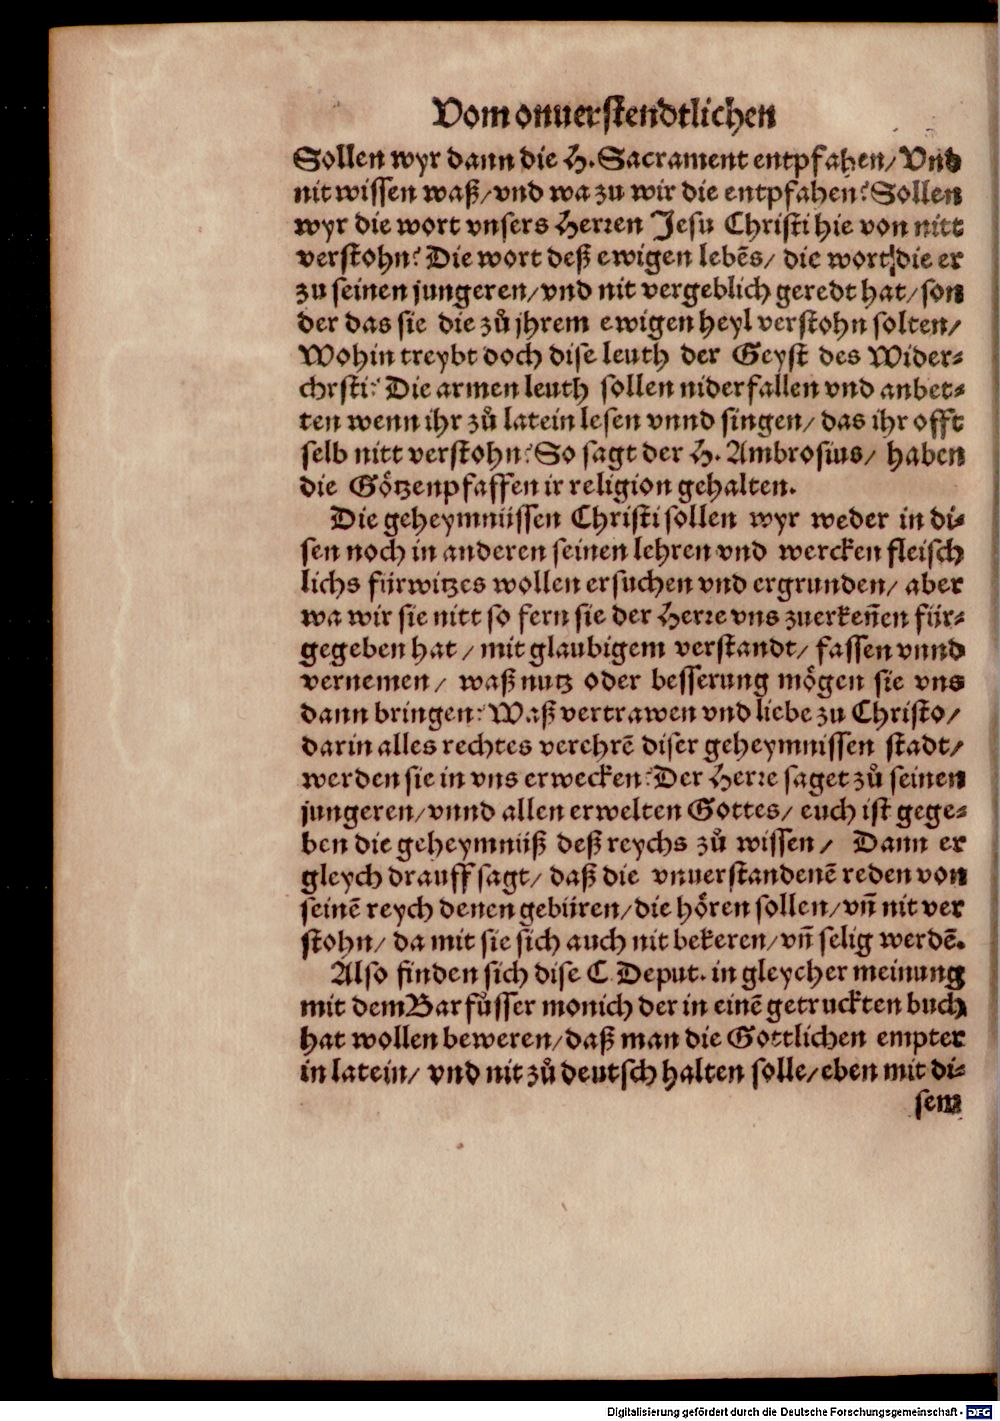 Vom onuerstendtlichen
Sollen wyr dann die H. Sacrament entpfahen/ Vnd
nit wissen waß/ vnd wa zu wir die entpfahen? Sollen
wyr die wort vnsers Herren Jesu Christi hie von nitt
verstohn? Die wort deß ewigen lebēs/ die wort/ die er
zu seinen jungeren/ vnd nit vergeblich geredt hat/ son
der das sie die zů jhrem ewigen heyl verstohn solten/
Wohin treybt doch dise leuth der Geyst des Wider-
chrsti? Die armen leuth sollen niderfallen vnd anbet-
ten wenn ihr zů latein lesen vnnd singen/ das ihr offt
selb nitt verstohn? So sagt der H. Ambrosius/ haben
die Götzenpfaffen ir religion gehalten.
Die geheymnüssen Christi sollen wyr weder in di-
sen noch in anderen seinen lehren vnd wercken fleisch
lichs fürwitzes wollen ersuchen vnd ergrunden/ aber
wa wir sie nitt so fern sie der Herre vns zuerkeñen für-
gegeben hat/ mit glaubigem verstandt/ fassen vnnd
vernemen/ waß nutz oder besserung mögen sie vns
dann bringen? Waß vertrawen vnd liebe zu Christo/
darin alles rechtes verehrē diser geheymnissen stadt/
werden sie in vns erwecken? Der Herre saget zů seinen
jungeren/ vnnd allen erwelten Gottes/ euch ist gege-
ben die geheymnüß deß reychs zů wissen/ Dann er
gleych drauff sagt/ daß die vnuerstandenē reden von
seinē reych denen gebüren/ die hören sollen/ vñ nit ver
stohn/ da mit sie sich auch nit bekeren/ vñ selig werdē.
Also finden sich dise C. Deput. in gleycher meinung
mit dem Barfůsser monich der in einē getruckten buch
hat wollen beweren/ daß man die Gottlichen empter
in latein/ vnd nit zů deutsch halten solle/ eben mit di-
sem
Digitalisierung gefördert durch die Deutsche Forschungsgemeinschaft - DFG